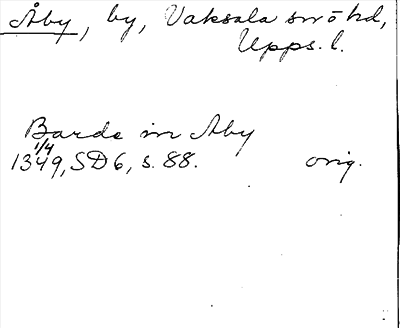 Åby, by, Vaksala sn o hd,
Upps. l.
Barde in Aby
1/4
1349, SD 6, s. 88. orig.